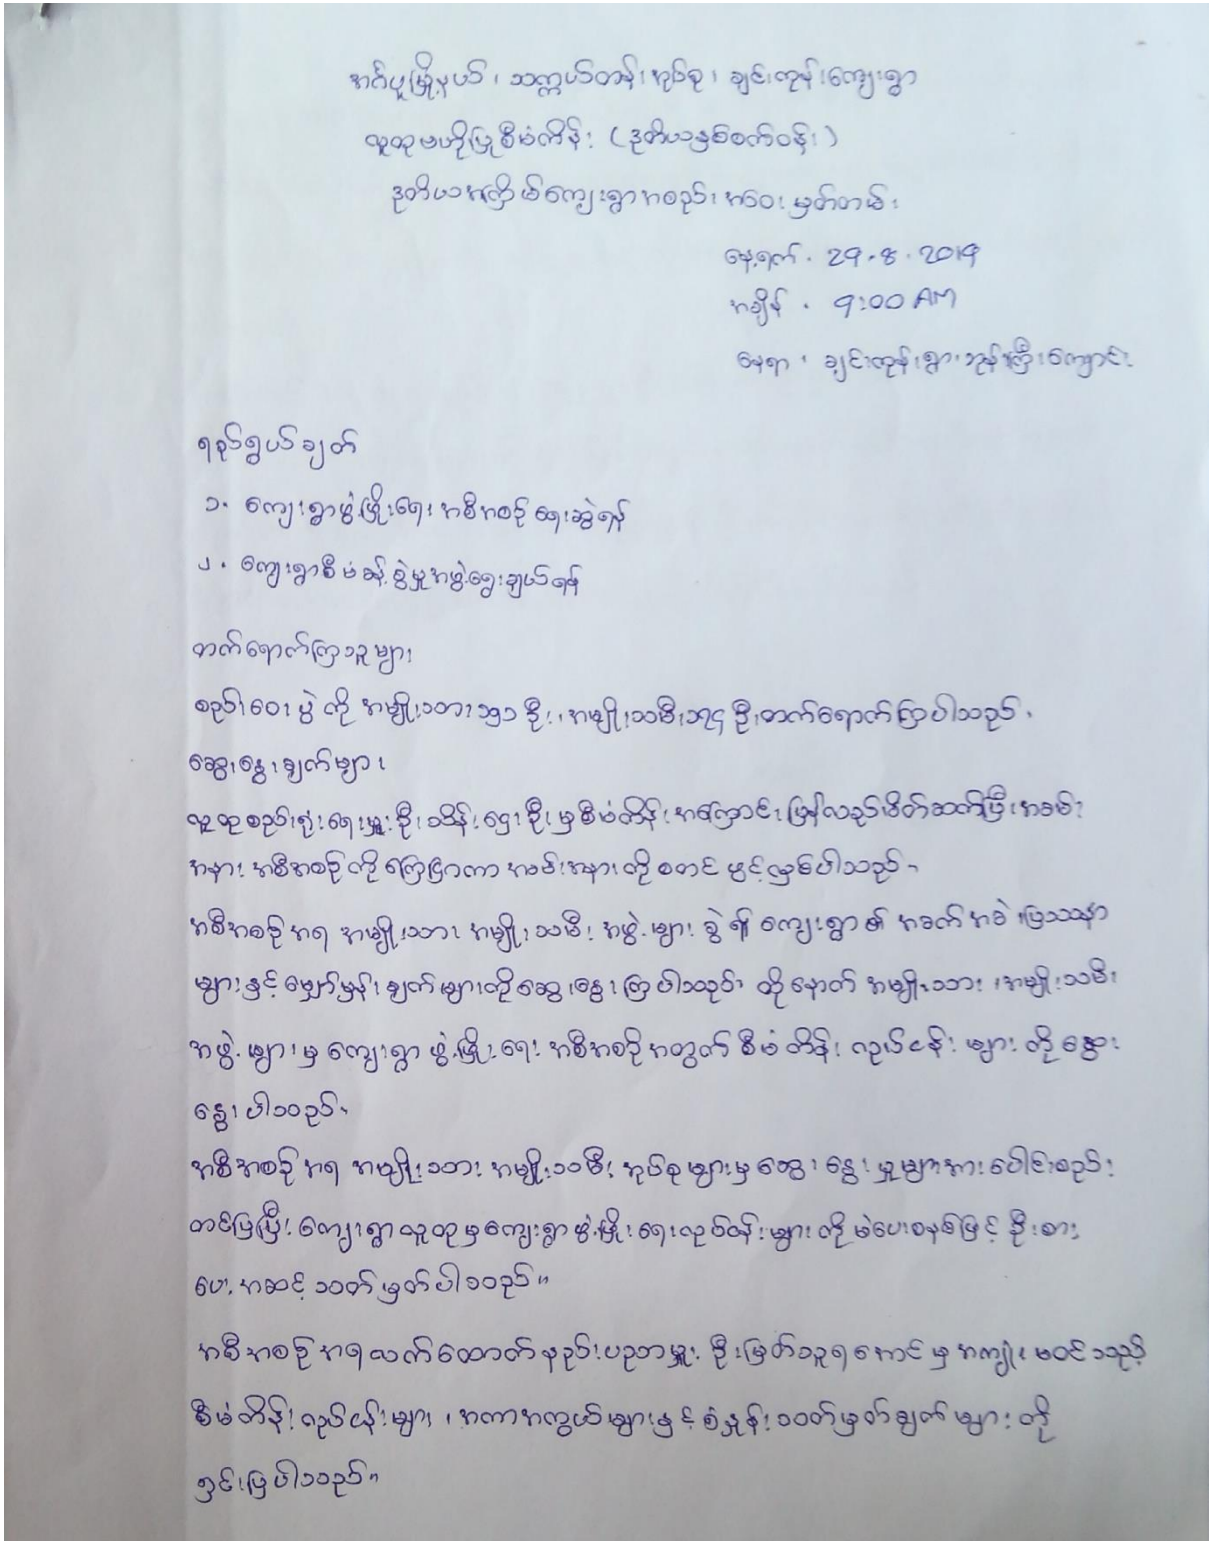 အင်္ဂပူမြို့နယ်၊ သက္ကယ်တန်းအုပ်စု၊ ချင်းကုန်းကျေးရွာ
လူထုဗဟိုပြုစီမံကိန်း (ဒုတိယနှစ်စက်ဝန်း)
ဒုတိယအကြိမ်ကျေးရွာအစည်းအဝေးမှတ်တမ်း
နေ့ရက် . 29.8.2019
အချိန် . 9:00 AM
နေရာ ၊ ချင်းကုန်းရွာ၊ဘုန်းကြီးကျောင်း
ရည်ရွယ်ချက်
၁. ကျေးရွာဖွံ့ဖြိုးရေး အစီအစဉ် ရေးဆွဲရန်
၂. ကျေးရွာစီမံခန့်ခွဲမှုအဖွဲ့ရွေးချယ်ရန်
တက်ရောက်ကြသူများ
စည်းဝေးပွဲကို အမျိုးသား ဦး ၊ အမျိုးသမီး ဦး တက်ရောက်ကြပါသည်.
ဆွေးနွေးချက်များ
လူထုစည်းရုံးရေးမှူး ဦးသိန်းဌေးဦးမှ စီမံကိန်းအကြောင်း ပြန်လည်မိတ်ဆက်ပြီး အခမ်း
အနား အစီအစဉ်ကို ကြေငြာကာ အခမ်းအနားကို စတင်ဖွင့်လှစ်ပါသည်။
အစီအစဉ်အရ အမျိုးသား၊ အမျိုးသမီး အဖွဲ့များ ခွဲ၍ ကျေးရွာ၏ အခက်အခဲ ပြဿနာ
များနှင့် မျှော်မှန်းချက်များကို ဆွေးနွေးကြပါသည်။ ထို့နောက် အမျိုးသား ၊အမျိုးသမီး
အဖွဲ့များမှ ကျေးရွာဖွံ့ဖြိုးရေး အစီအစဉ်အတွက် စီမံကိန်းလုပ်ငန်းများကို ဆွေး
နွေးပါသည်။
အစီအစဉ်အရ အမျိုးသား အမျိုးသမီး အုပ်စုများမှ ဆွေးနွေးမှုများအား ပေါင်းစည်း
တင်ပြပြီး ကျေးရွာလူထုမှ ကျေးရွာဖွံ့ဖြိုးရေးလုပ်ငန်းများကို မဲပေးစနစ်ဖြင့် ဦးစား
ပေးအဆင့် သတ်မှတ်ပါသည်။
အစီအစဉ်အရ လက်ထောက်နည်းပညာမှူး ဦးမြတ်သူရအောင်မှ အကျုံးမဝင်သည့်
စီမံကိန်းလုပ်ငန်းများ ၊ အကာအကွယ်များနှင့် စံနှုန်းသတ်မှတ်ချက်များကို
ရှင်းပြပါသည်။